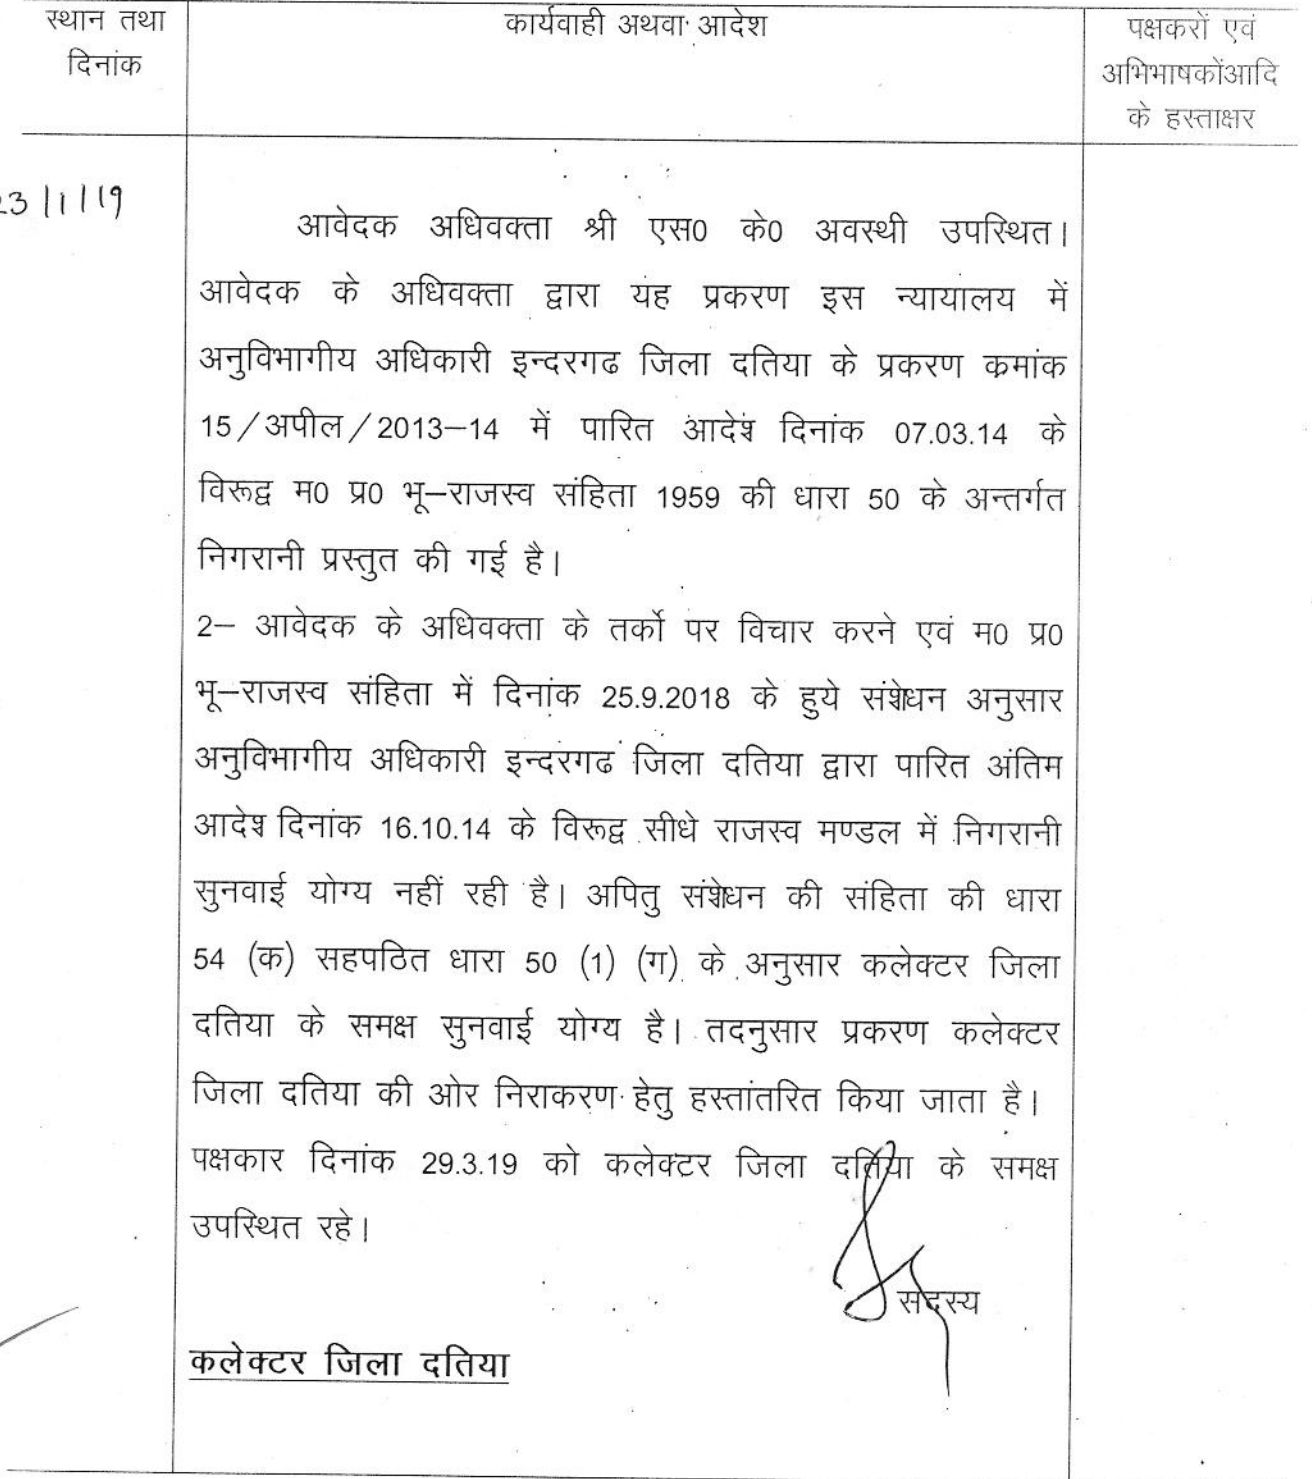 स्थान तथा
दिनांक
कार्यवाही अथवा आदेश
पक्षकरों एवं
अभिभाषकोंआदि
के हस्ताक्षर
23/1/19
आवेदक अधिवक्ता श्री एस0 के0 अवस्थी उपस्थित।
आवेदक के अधिवक्ता द्वारा यह प्रकरण इस न्यायालय में
अनुविभागीय अधिकारी इन्दरगढ जिला दतिया के प्रकरण कमांक
15/अपील/2013–14 में पारित आदेश दिनांक 07.03.14 के
विरूद्व म0 प्र0 भू–राजस्व संहिता 1959 की धारा 50 के अन्तर्गत
निगरानी प्रस्तुत की गई है।
2– आवेदक के अधिवक्ता के तर्को पर विचार करने एवं म0 प्र0
भू–राजस्व संहिता में दिनांक 25.9.2018 के हुये संशेधन अनुसार
अनुविभागीय अधिकारी इन्दरगढ जिला दतिया द्वारा पारित अंतिम
आदेश दिनांक 16.10.14 के विरूद्व सीधे राजस्व मण्डल में निगरानी
सुनवाई योग्य नहीं रही है। अपितु संशेधन की संहिता की धारा
54 (क) सहपठित धारा 50 (1) (ग) के अनुसार कलेक्टर जिला
दतिया के समक्ष सुनवाई योग्य है। तदनुसार प्रकरण कलेक्टर
जिला दतिया की ओर निराकरण हेतु हस्तांतरित किया जाता है।
पक्षकार दिनांक 29.3.19 को कलेक्टर जिला दतिया के समक्ष
उपस्थित रहे।
सदस्य
कलेक्टर जिला दतिया